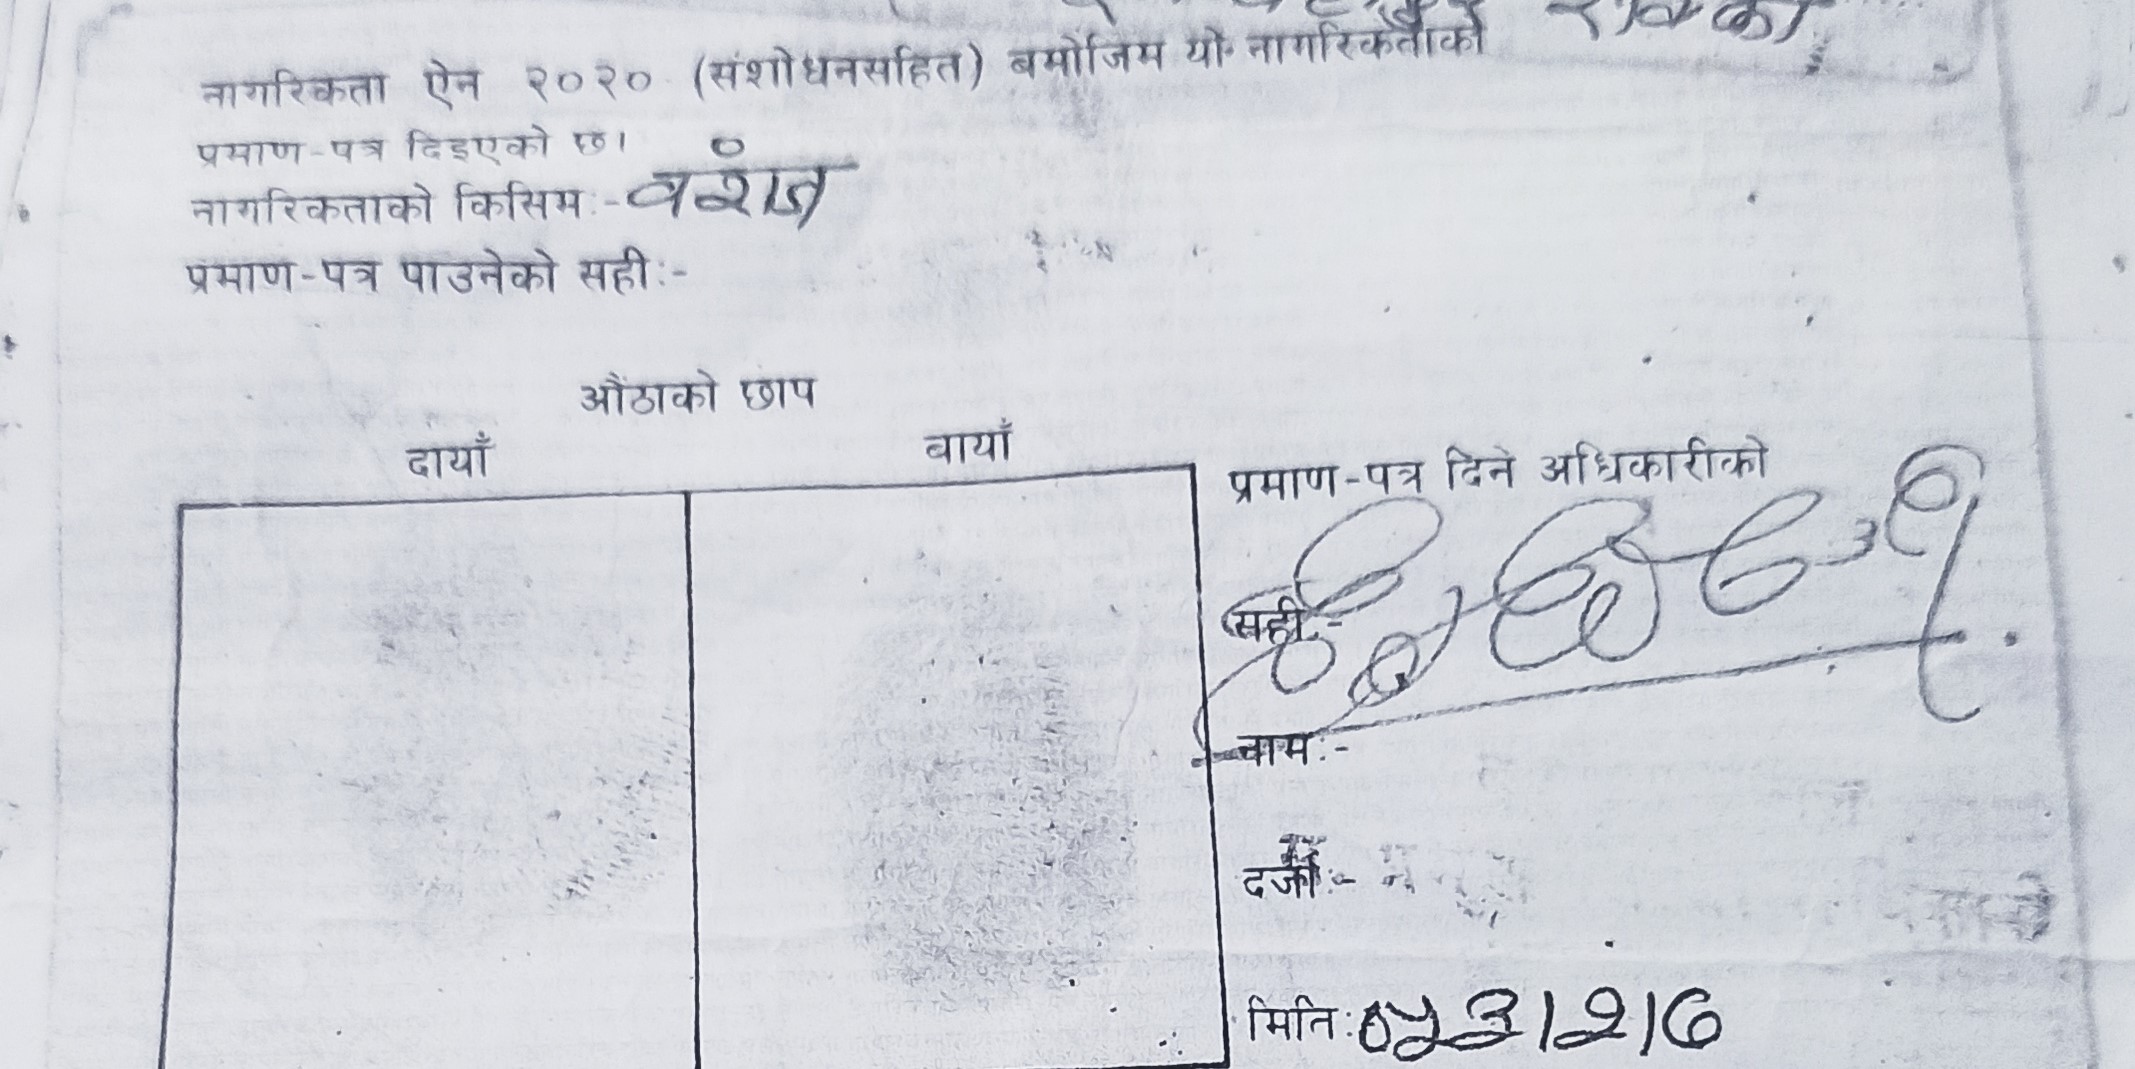 नागरिकता ऐन २०२० (संशोधनसहित) बमोजिम यो नागरिकताको
प्रमाण-पत्र दिइएको छ।
नागरिकताको किसिमः- वंशज
प्रमाण-पत्र पाउनेको सहीः-
औंठाको छाप
दायाँ बायाँ
प्रमाण-पत्र दिने अधिकारीको
सहीः-
नामः-
दर्जाः-
मितिः